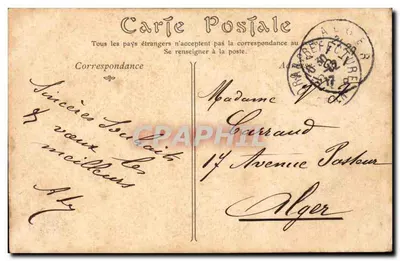 Carte Postale
Tous les pays étrangers n'acceptent pas la correspondance au
Se renseigner à la poste.
Correspondance
ALGER
Sincères Souhaits
& vœux les
meilleurs
Madame
Carraud
17 Avenue Pasteur
Alger
CPHIPHI